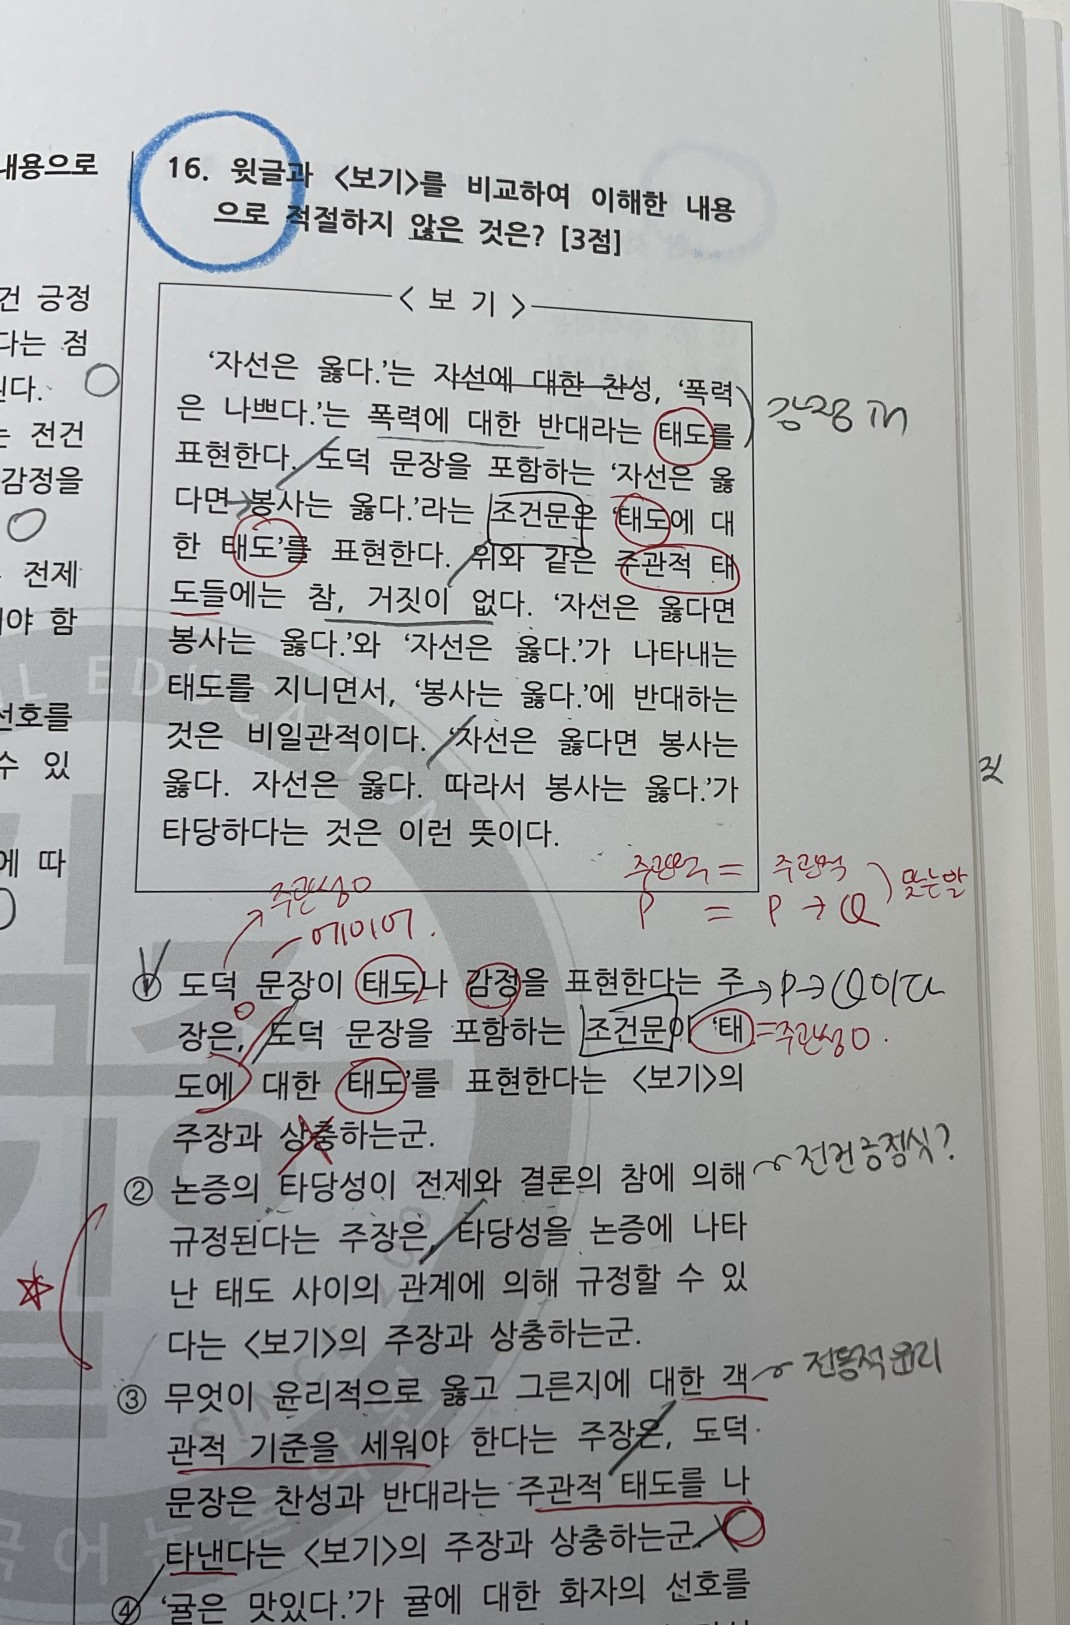 내용으로
건 긍정
다는 점
된다.
는 전건
감정을
전제
야 함
선호를
수 있
에 따
16. 윗글과 <보기>를 비교하여 이해한 내용
으로 적절하지 않은 것은? [3점]
< 보 기 >
‘자선은 옳다.’는 자선에 대한 찬성, ‘폭력
은 나쁘다.’는 폭력에 대한 반대라는 태도를
표현한다. 도덕 문장을 포함하는 ‘자선은 옳
다면 봉사는 옳다.’라는 조건문은 ‘태도에 대
한 태도’를 표현한다. 위와 같은 주관적 태
도들에는 참, 거짓이 없다. ‘자선은 옳다면
봉사는 옳다.’와 ‘자선은 옳다.’가 나타내는
태도를 지니면서, ‘봉사는 옳다.’에 반대하는
것은 비일관적이다. ‘자선은 옳다면 봉사는
옳다. 자선은 옳다. 따라서 봉사는 옳다.’가
타당하다는 것은 이런 뜻이다.
주관적 = 주관적
P = P → Q
맞는말
주관성O
에이어.
① 도덕 문장이 태도나 감정을 표현한다는 주
장은, 도덕 문장을 포함하는 조건문이 ‘태
도에 대한 태도’를 표현한다는 <보기>의
주장과 상충하는군.
P→Q이다
=주관성O.
② 논증의 타당성이 전제와 결론의 참에 의해
규정된다는 주장은, 타당성을 논증에 나타
난 태도 사이의 관계에 의해 규정할 수 있
다는 <보기>의 주장과 상충하는군.
전건긍정식?
③ 무엇이 윤리적으로 옳고 그른지에 대한 객
관적 기준을 세워야 한다는 주장은, 도덕
문장은 찬성과 반대라는 주관적 태도를 나
타낸다는 <보기>의 주장과 상충하는군.
전통적 윤리
④ ‘귤은 맛있다.’가 귤에 대한 화자의 선호를
EDUCATION